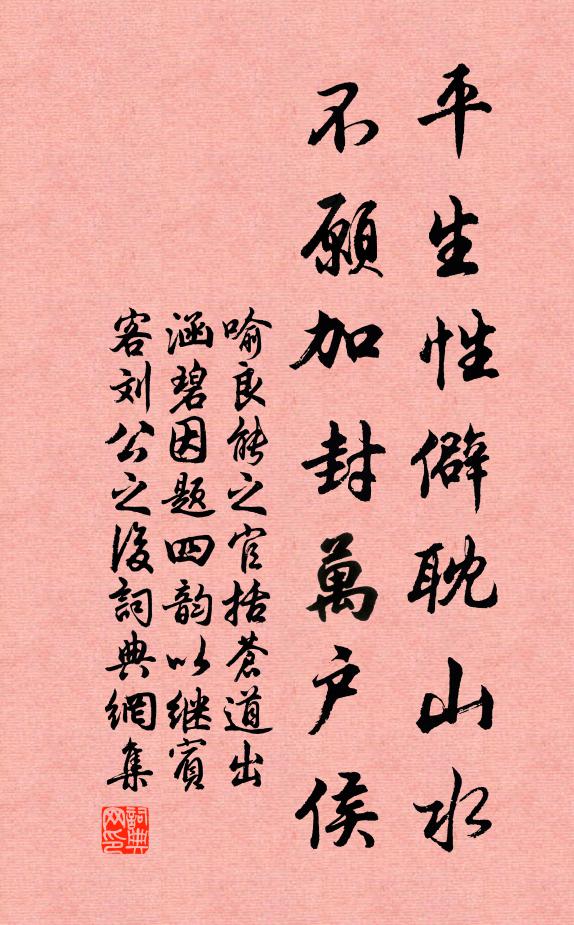 平生性僻耽山水
不願加封萬户侯
喻良能之官括蒼道出
涵碧因题四韵以继賓
客刘公之後詞典網集
詞典网印